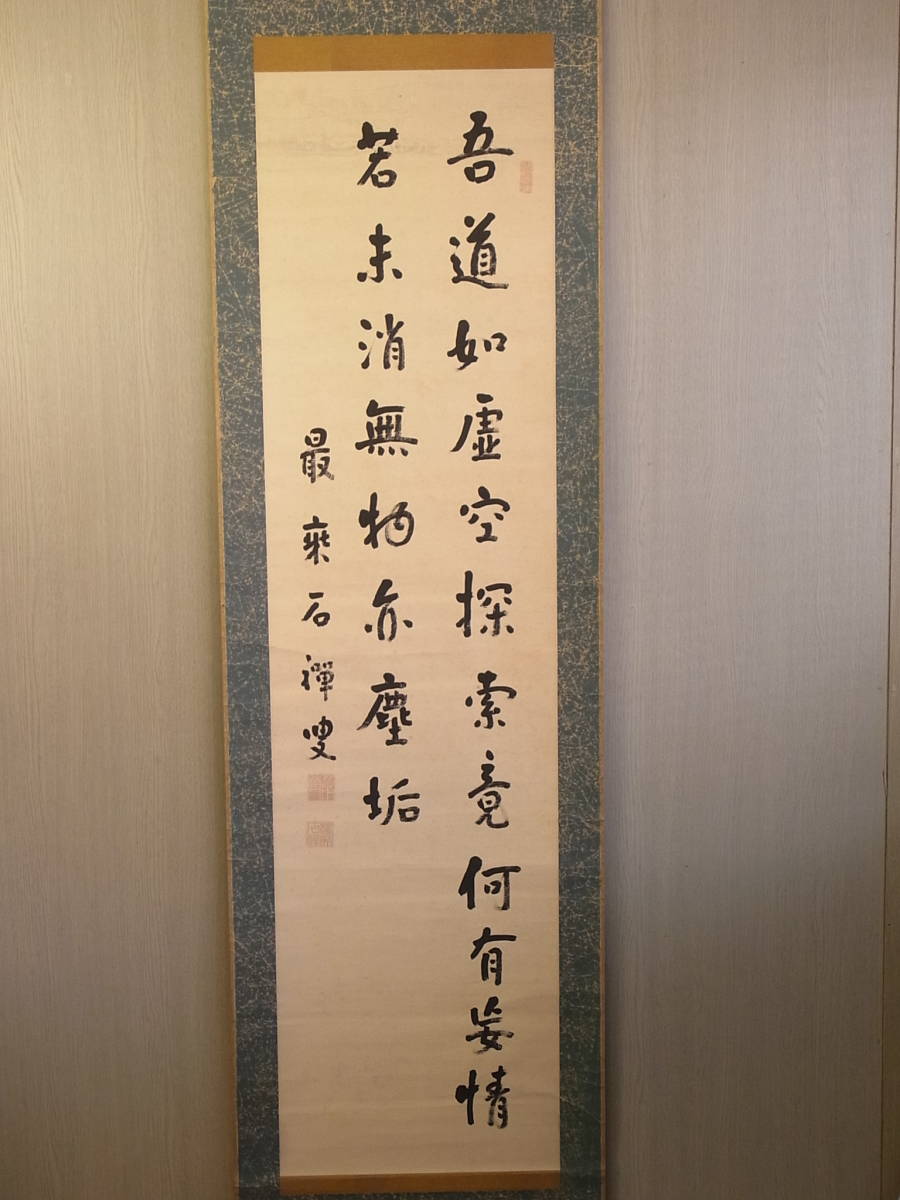 吾道如虚空探索竟何有妄情
若未消無物亦塵垢
最乗石禪叟